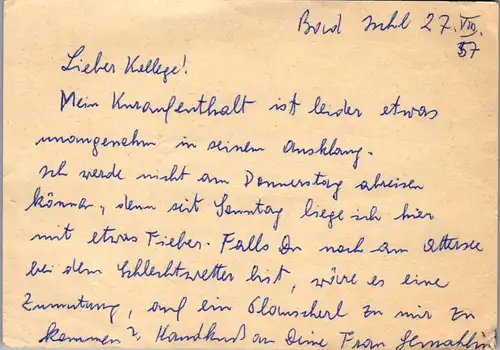 Bad Ischl 27. VIII. 57
Lieber Kollege!
Mein Kuraufenthalt ist leider etwas
unangenehm in seinem Ausklang.
Ich werde nicht am Donnerstag abreisen
können, denn seit Sonntag liege ich hier
mit etwas Fieber. Falls Du noch am Attersee
bei dem Schlechtwetter bist, wäre es eine
Zumutung, auf ein Plauscherl zu mir zu
kommen? Handkuß an Deine Frau Gemahlin